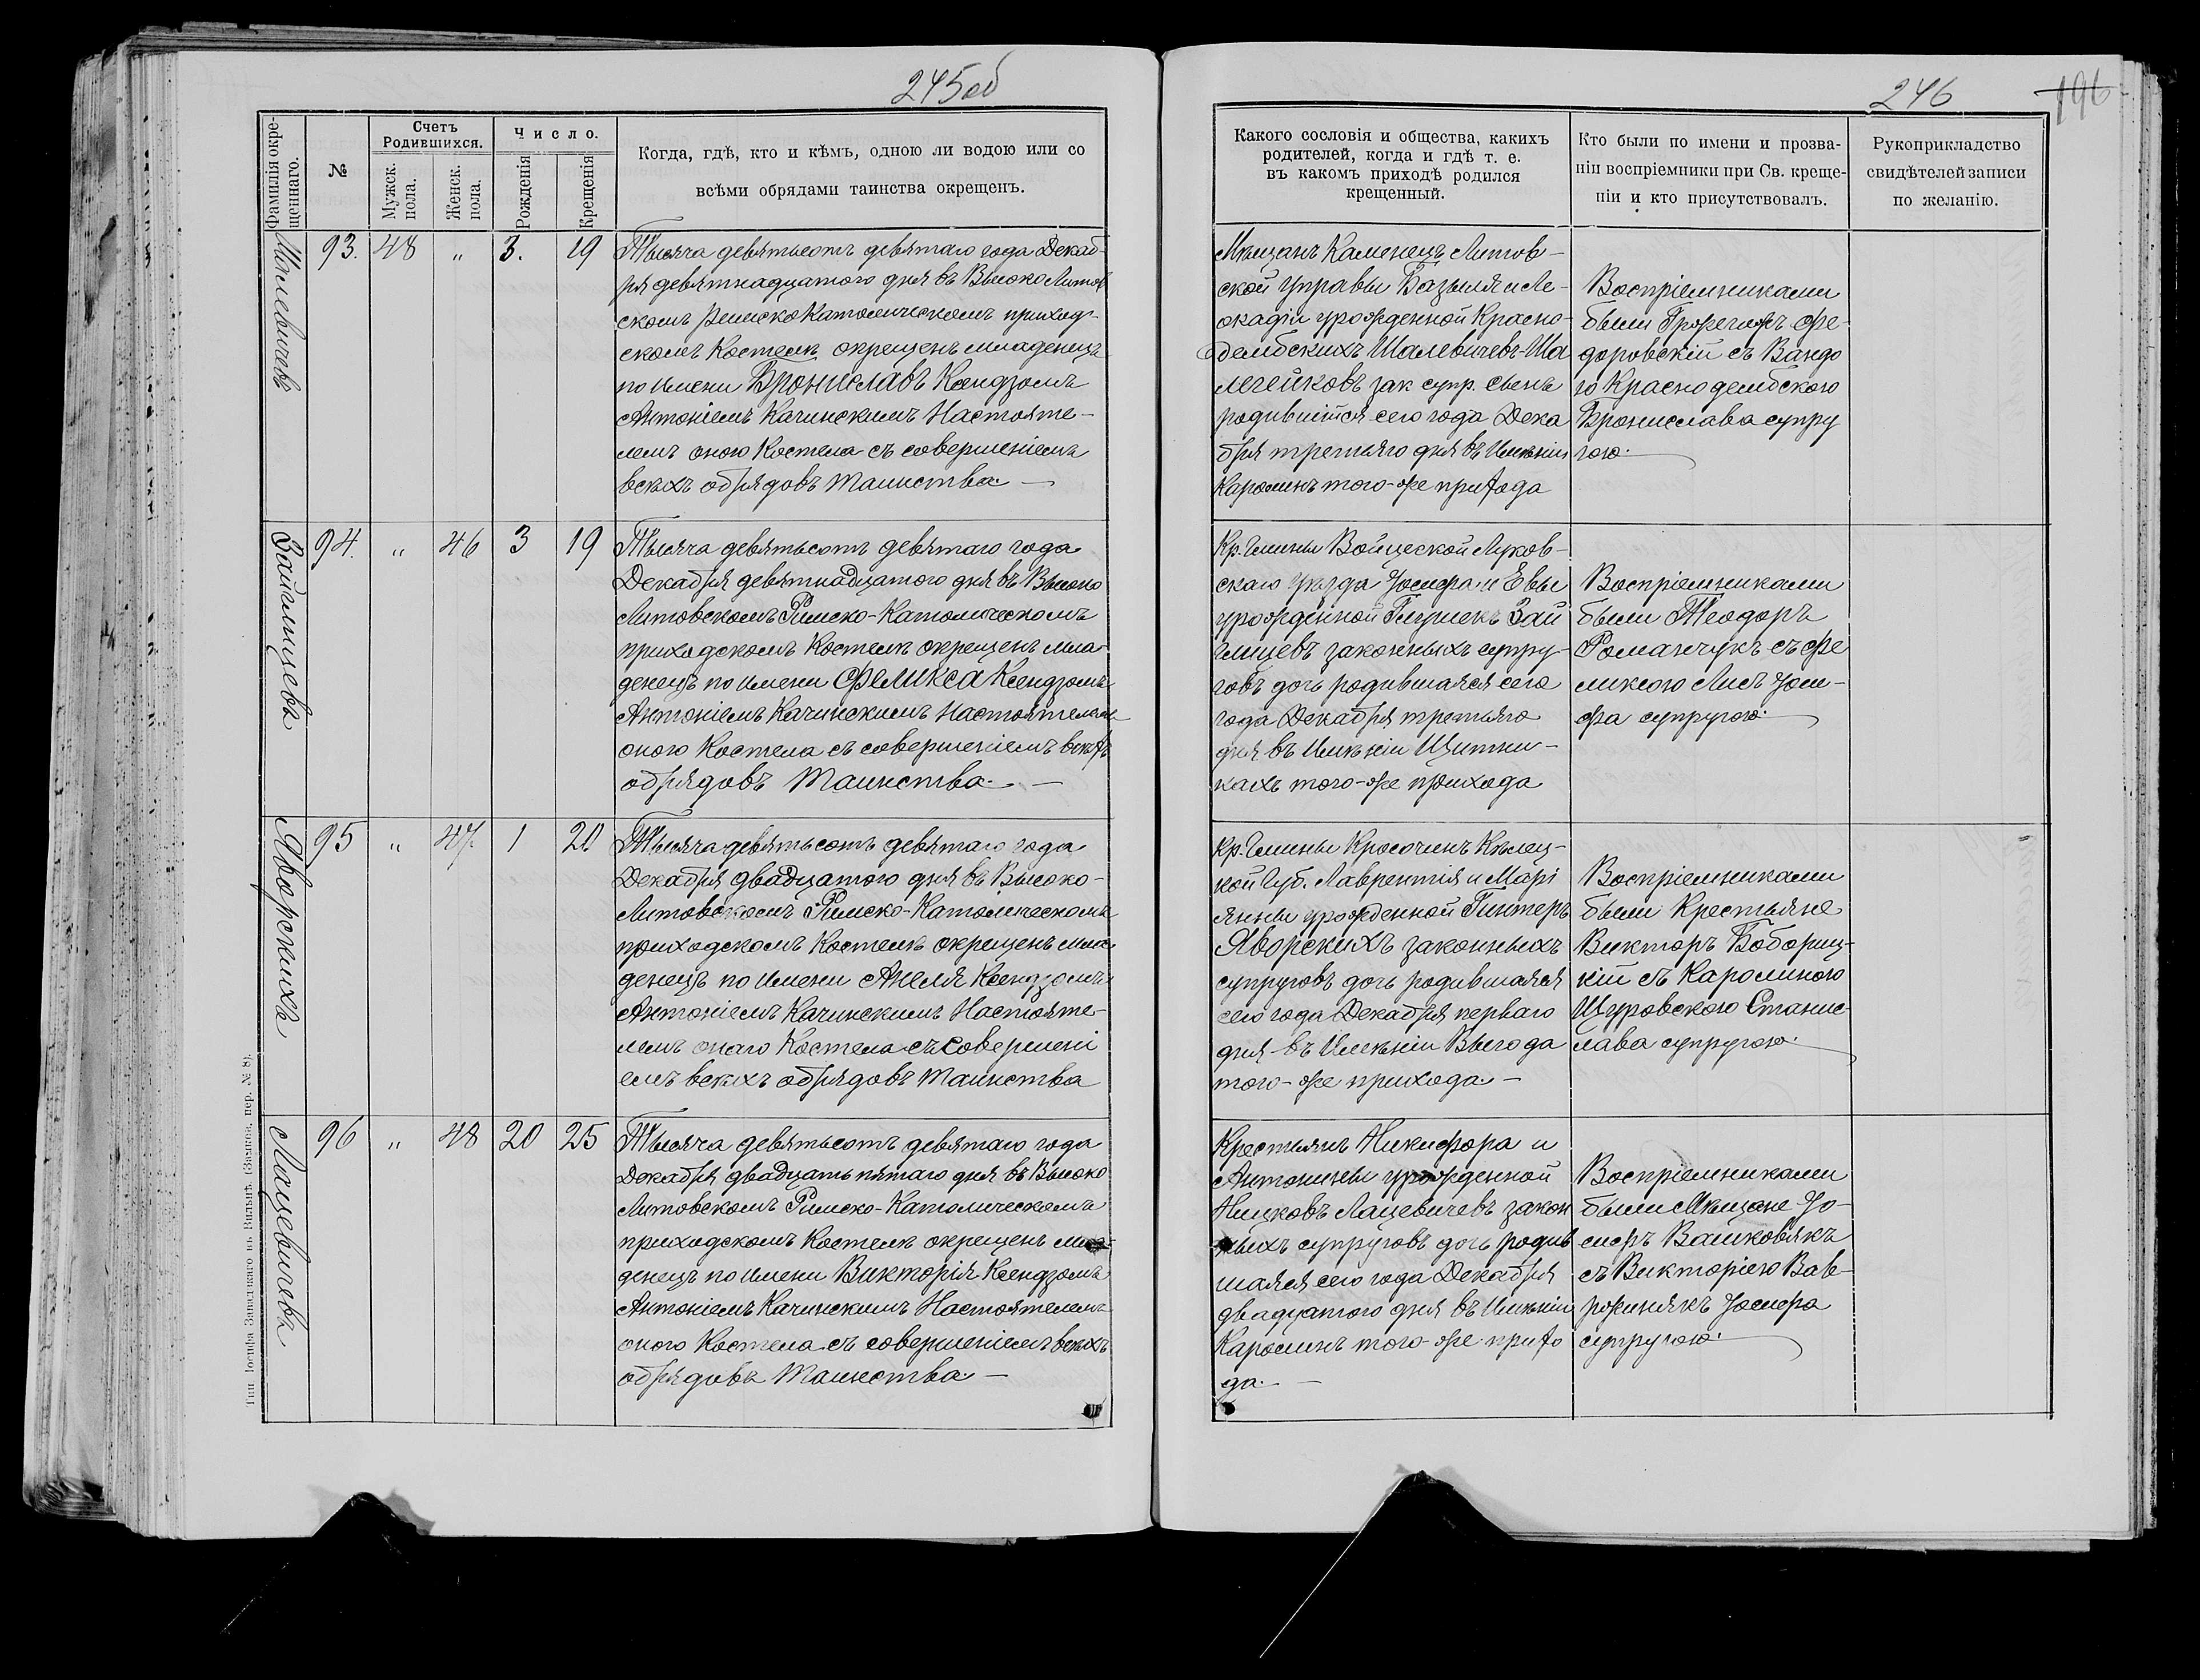 245об
Фамилія окре-
щеннаго.
№
Счетъ
Родившихся.
Мужск.
пола.
Женск.
пола.
Число.
Рожденія
Крещенія
Когда, гдѣ, кто и кѣмъ, одною ли водою или со
всѣми обрядами таинства окрещенъ.
Шалевичевъ
93. 48 „ 3. 19
Тысяча девятьсотъ девятаго года Декаб-
ря девятнадцатого дня въ Высоко Литов
скомъ Римско Католическомъ приход-
скомъ Костелѣ окрещенъ младенецъ
по имени Брониславъ Ксендзомъ
Антоніемъ Качинскимъ Настояте-
лемъ оного Костела съ совершеніемъ
всѣхъ обрядовъ Таинства. —
Зайгмицева
94. „ 46 3 19
Тысяча девятьсотъ девятаго года
Декабря девятнадцатого дня въ Высоко
Литовскомъ Римско-Католическомъ
приходскомъ Костелѣ окрещенъ мла-
денецъ по имени Феликса Ксендзомъ
Антоніемъ Качинскимъ Настоятелемъ
оного Костела съ совершеніемъ всѣхъ
обрядовъ Таинства. —
Яворскихъ
95 „ 47. 1 20
Тысяча девятьсотъ девятаго года
Декабря двадцатого дня въ Высоко-
Литовскомъ Римско-Католическомъ
приходскомъ Костелѣ окрещенъ мла-
денецъ по имени Анеля Ксендзомъ
Антоніемъ Качинскимъ Настояте-
лемъ онаго Костела съ совершені
емъ всѣхъ обрядовъ Таинства
Лацевичева
96 „ 48 20 25
Тысяча девятьсотъ девятаго года
Декабря двадцать пятаго дня въ Высоко
Литовскомъ Римско-Католическомъ
приходскомъ Костелѣ окрещенъ мла-
денецъ по имени Викторія Ксендзомъ
Антоніемъ Качинскимъ Настоятелемъ
оного Костела съ совершеніемъ всѣхъ
обрядовъ Таинства —
Тип. Іосифа Завадзкаго въ Вильнѣ. (Замков. пер. № 8).
246
196
Какого сословія и общества, какихъ
родителей, когда и гдѣ т. е.
въ какомъ приходѣ родился
крещенный.
Кто были по имени и прозва-
ніи воспріемники при Св. креще-
ніи и кто присутствовалъ.
Рукоприкладство
свидѣтелей записи
по желанію.
Мѣщанъ Каменецъ Литов-
ской Управы Базыля и Ле-
окадіи урожденной Красно-
дембскихъ Шалевичевъ-Ша
легейковъ зак супр. сынъ
родившійся сего года Дека
бря третьяго дня въ Имѣніи
Каролинъ того-же прихода
Воспріемниками
были Гржегожъ Фе-
доровскій съ Вандо
ю Краснодембского
Бронислава супру
гою.
Кр. Гмины Войцеской Луков-
скаго уѣзда Іосифа и Евы
урожденной Глушекъ Зай
гмицевъ законныхъ супру-
говъ дочь родившаяся сего
года Декабря третьяго
дня въ Имѣніи Щитни-
кахъ того-же прихода
Воспріемниками
были Теодоръ
Романчукъ съ Фе
ликсою Лисъ Іоси-
фа супругою.
Кр. Гмины Красочинъ Кѣлец-
кой Губ. Лаврентія и Марі
янны урожденной Гинтеръ
Яворскихъ законныхъ
супруговъ дочь родившаяся
сего года Декабря перваго
дня въ Имѣніи Выгода
того-же прихода. —
Воспріемниками
были Крестьяне
Викторъ Боборыц-
кій съ Каролиною
Щуровского Станис-
лава супругою.
Крестьянъ Никифора и
Антонины урожденной
Ницковъ Лацевичевъ закон
ныхъ супруговъ дочь родив
шаяся сего года Декабря
двадцатого дня въ Имѣніи
Каролинъ того-же прихо
да. —
Воспріемниками
были Мѣщане Іо-
сифъ Вашковякъ
съ Викторіею Вав-
ржинякъ Іосифа
супругою.